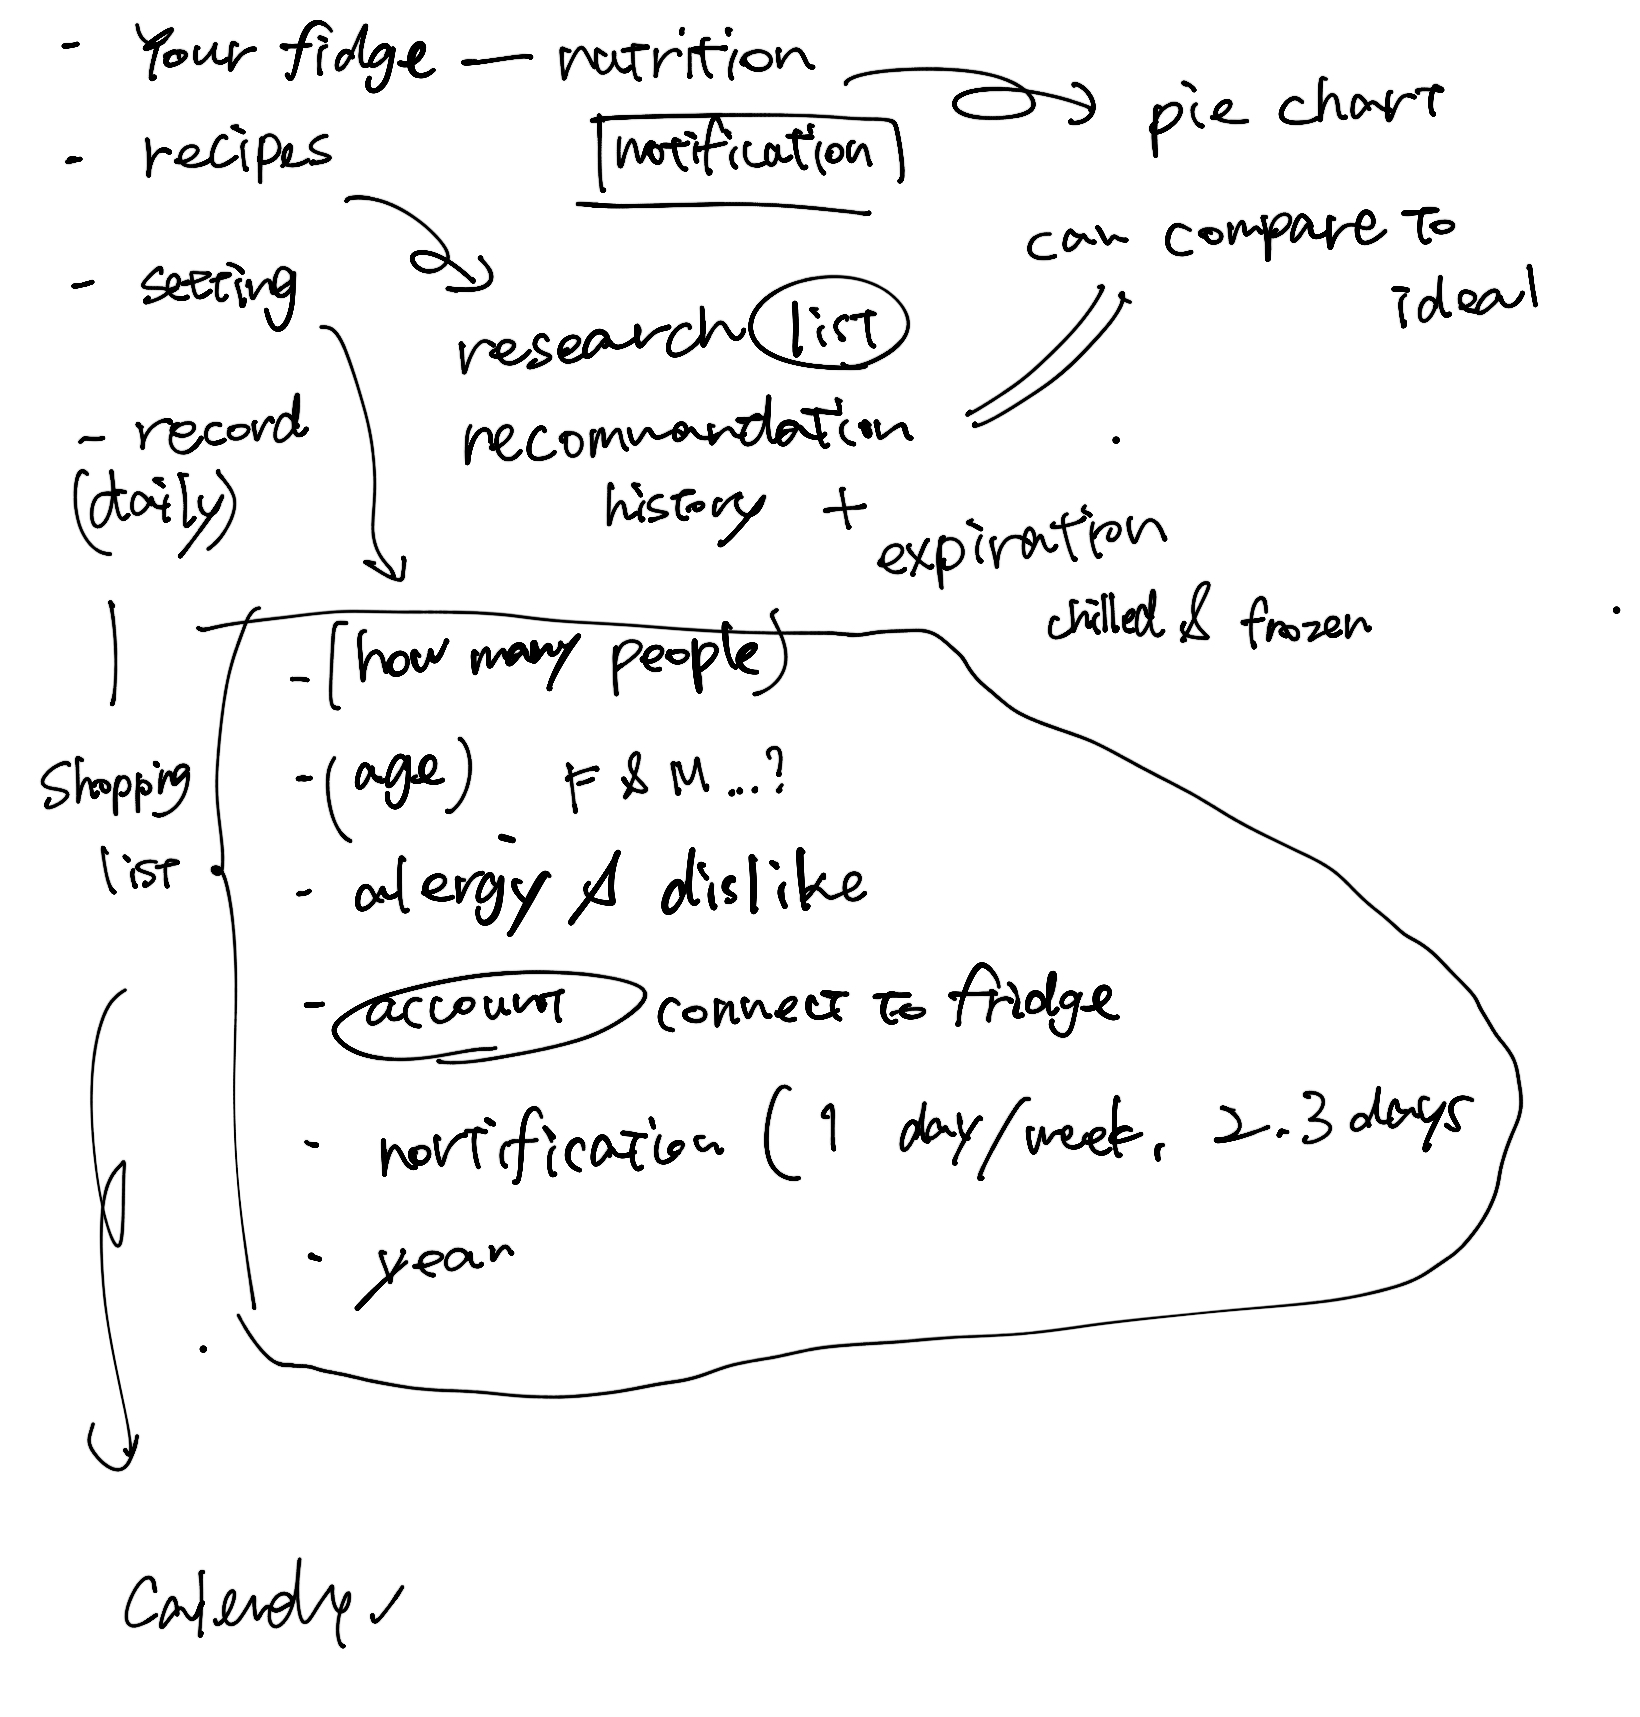 - Your fidge — nutrition
pie chart
- recipes
notification
can compare to
ideal
- setting
research list
- record
(daily)
recommandation
history +
expiration
chilled & frozen
- [how many people)
Shopping
list
- (age) F & M...?
- alergy & dislike
- account connect to fridge
- nortification (1 day/week, 2.3 days
- year